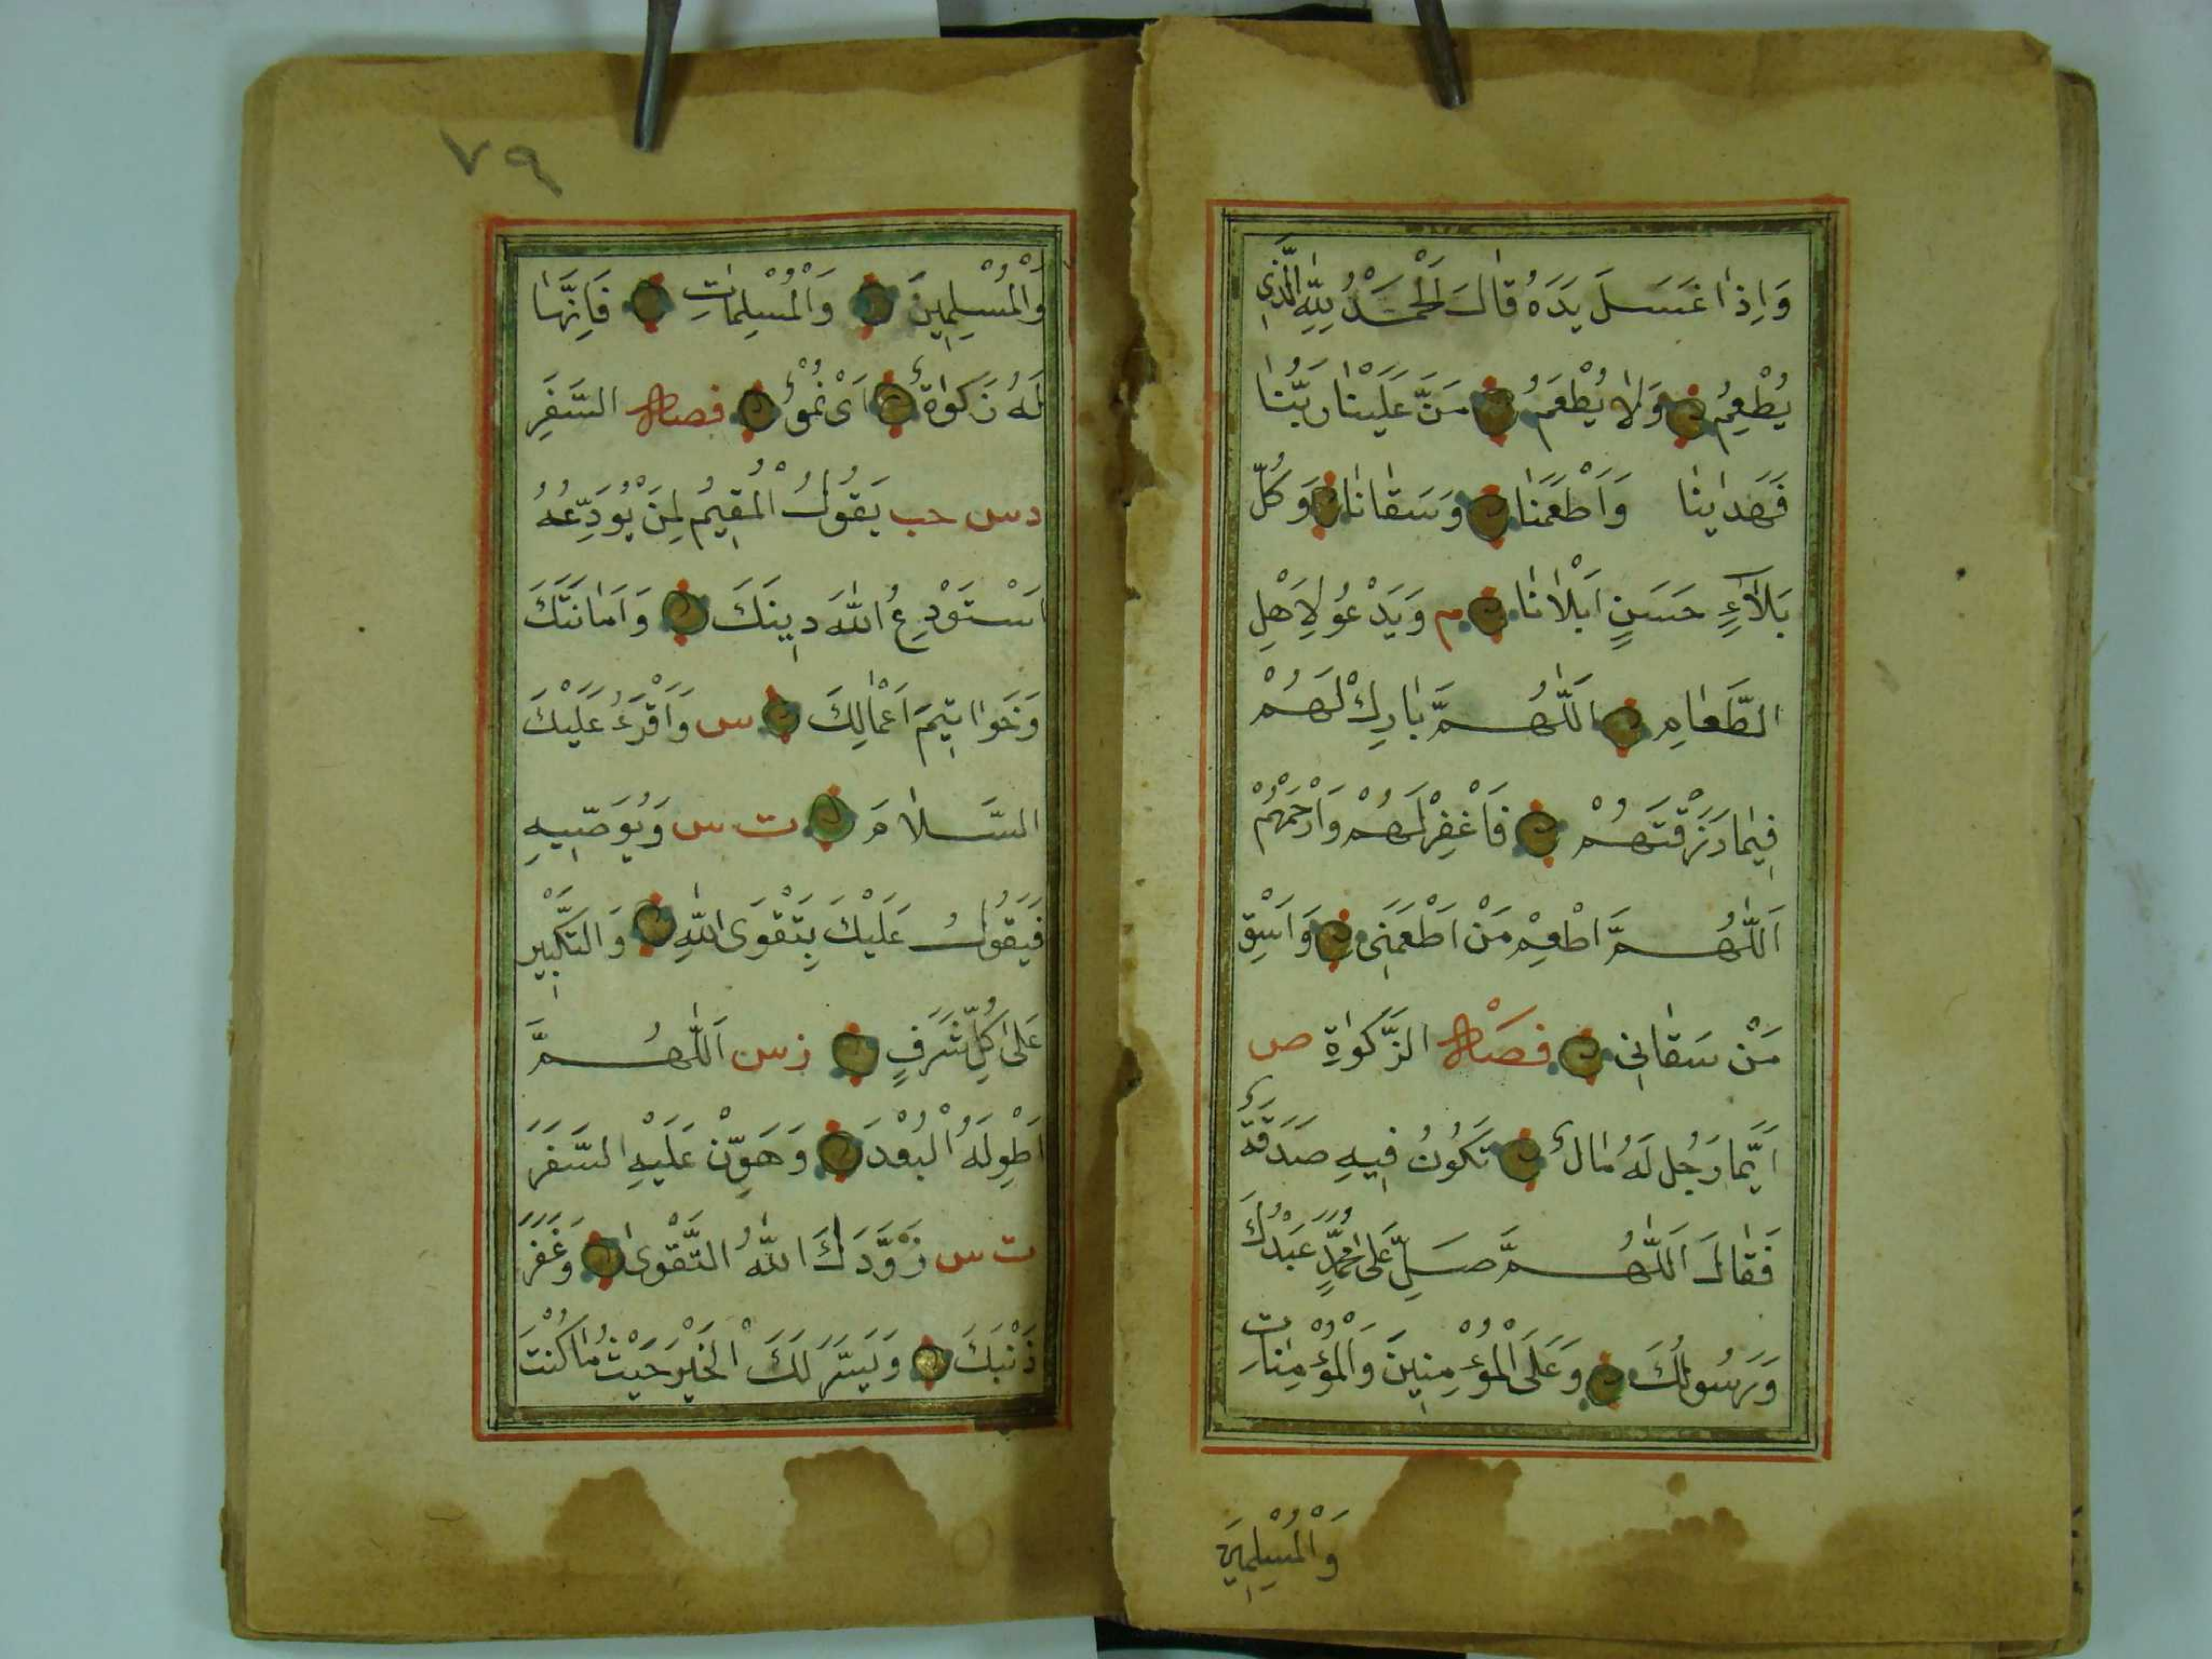 وَاِذَا غَسَلَ يَدَهُ قَالَ اَلْحَمْدُ لِلّٰهِ الَّذِى
يُطْعِمُ وَلَا يُطْعَمُ مَنَّ عَلَيْنَا رَبُّنَا
فَهَدَاينَا وَاَطْعَمَنَا وَسَقَانَا وَكُلَّ
بَلَاۤءٍ حَسَنٍ اَبْلَانَا م وَيَدْعُو لِاَهْلِ
الطَّعَامِ اَللّٰهُمَّ بَارِكْ لَهُمْ
فِيمَا رَزَقْتَهُمْ فَاغْفِرْ لَهُمْ وَارْحَمْهُمْ
اَللّٰهُمَّ اَطْعِمْ مَنْ اَطْعَمَنِى وَاَسْقِ
مَنْ سَقَانِى فصل الزَّكٰوةِ ص
اَيُّمَا رَجُلٍ لَهُ مَالٌ تَكُونُ فِيهِ صَدَقَةٌ
فَقَالَ اَللّٰهُمَّ صَلِّ عَلَى مُحَمَّدٍ عَبْدِكَ
وَرَسُولِكَ وَعَلَى الْمُؤْمِنِينَ وَالْمُؤْمِنَاتِ
وَالْمُسْلِمِينَ
٧٩
وَالْمُسْلِمِينَ وَالْمُسْلِمَاتِ فَاِنَّهَا
لَهُ زَكٰوةٌ اَىْ نُمُوٌّ فصل السَّفَرِ
د س حب يَقُولُ الْمُقِيمُ لِمَنْ يُوَدِّعُهُ
اَسْتَوْدِعُ اللّٰهَ دِينَكَ وَاَمَانَتَكَ
وَخَوَاتِيمَ اَعْمَالِكَ س وَاَقْرَءُ عَلَيْكَ
السَّلَامَ ت س وَيُوصِّيهِ
فَيَقُولُ عَلَيْكَ بِتَقْوَى اللّٰهِ وَالتَّكْبِيرِ
عَلَى كُلِّ شَرَفٍ ز س اَللّٰهُمَّ
اطْوِ لَهُ الْبُعْدَ وَهَوِّنْ عَلَيْهِ السَّفَرَ
ت س زَوَّدَكَ اللّٰهُ التَّقْوٰى وَغَفَرَ
ذَنْبَكَ وَيَسَّرَ لَكَ الْخَيْرَ حَيْثُ مَا كُنْتَ